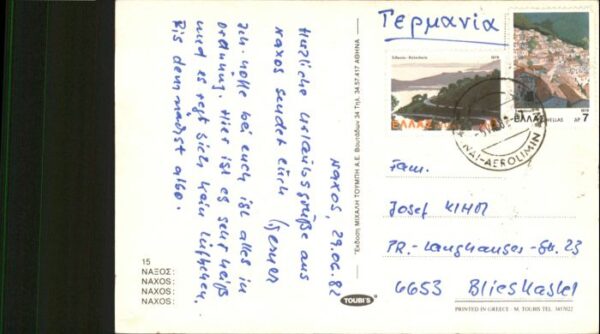 Naxos, 29.06.82
Herzliche Urlaubsgrüße aus
Naxos sendet euch
Ich hoffe bei euch ist alles in
Ordnung. Hier ist es sehr heiß
und es regt sich kein Lüftchen.
Bis demnächst also.
15
ΝΑΞΟΣ:
NAXOS:
NAXOS:
NAXOS:
Έκδοση ΜΙΧΑΛΗ ΤΟΥΜΠΗ Α.Ε. Βουτάδων 34 Τηλ. 34.57.417 ΑΘΗΝΑ
TOUBI'S
Γερμανία
1979
ΕΛΛΑΣ
ΕΛΛΑΣ HELLAS
ΔΡ 7
AEROLIMIN
Fam.
Josef
PR.-Langhauser-Str. 23
6653 Blieskastel
PRINTED IN GREECE M. TOUBIS TEL. 3457022